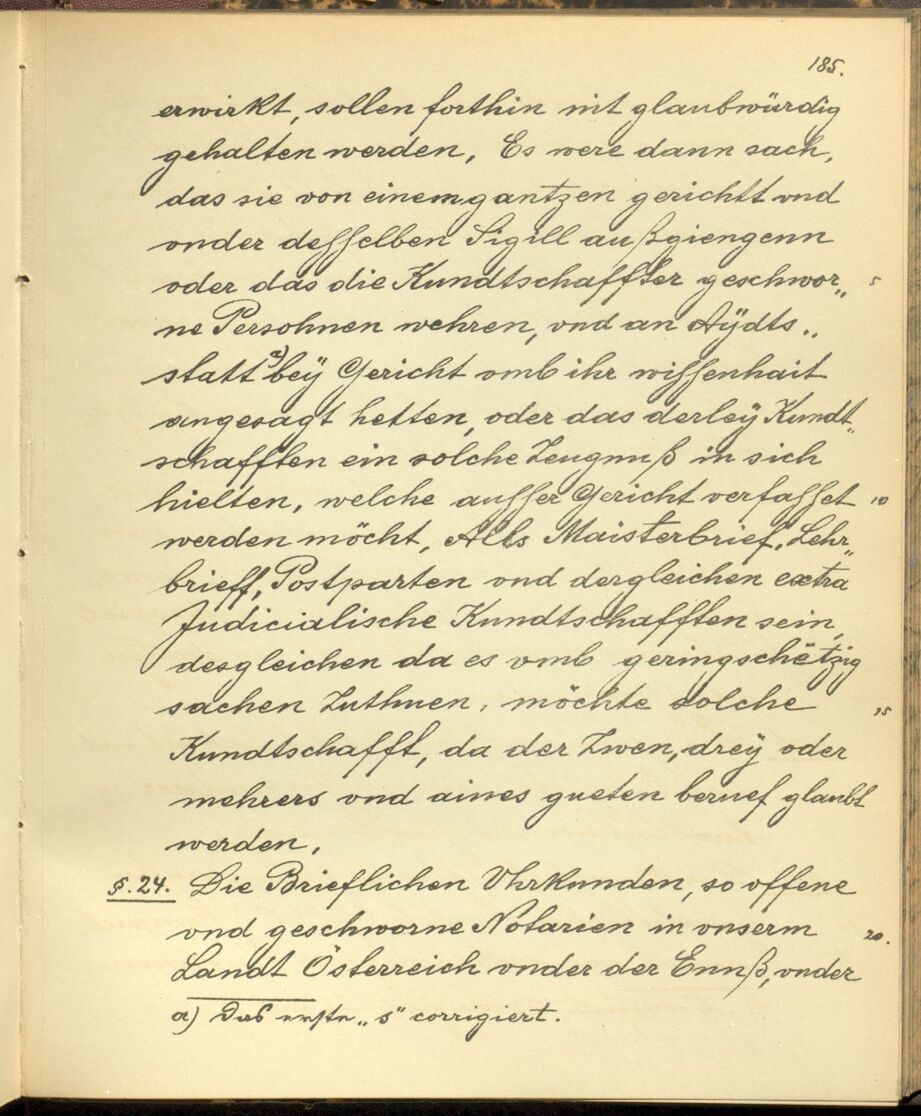 185.
erwirkt, sollen forthin nit glaubwürdig
gehalten werden, Es were dann sach,
das sie von einem gantzen gerichtt vnd
vnder desselben Sigill außgiengenn
oder das die Kundtschaffter geschwor„ 5
ne Persohnen wehren, vnd an Aÿdts„
statt a) beÿ Gericht vmb ihr wissenhait
angesagt hetten, oder das derleÿ Kundt„
schafften ein solche Zeugnuß in sich
hielten, welche ausser Gericht verfasset 10
werden möcht, Alls Maisterbrief, Lehr„
brieff, Postparten vnd dergleichen extra
Judicialische Kundtschafften sein,
desgleichen da es vmb geringschëtzig
sachen Zuthuen, möchte solche 15
Kundtschafft, da der Zwen, dreÿ oder
mehrers vnd aines gueten beruef glaubt
werden,
§. 24. Die Brieflichen Vhrkunden, so offene
vnd geschworne Notarien in vnserm 20.
Landt Österreich vnder der Ennß, vnder
a) Das erste „s“ corrigiert.